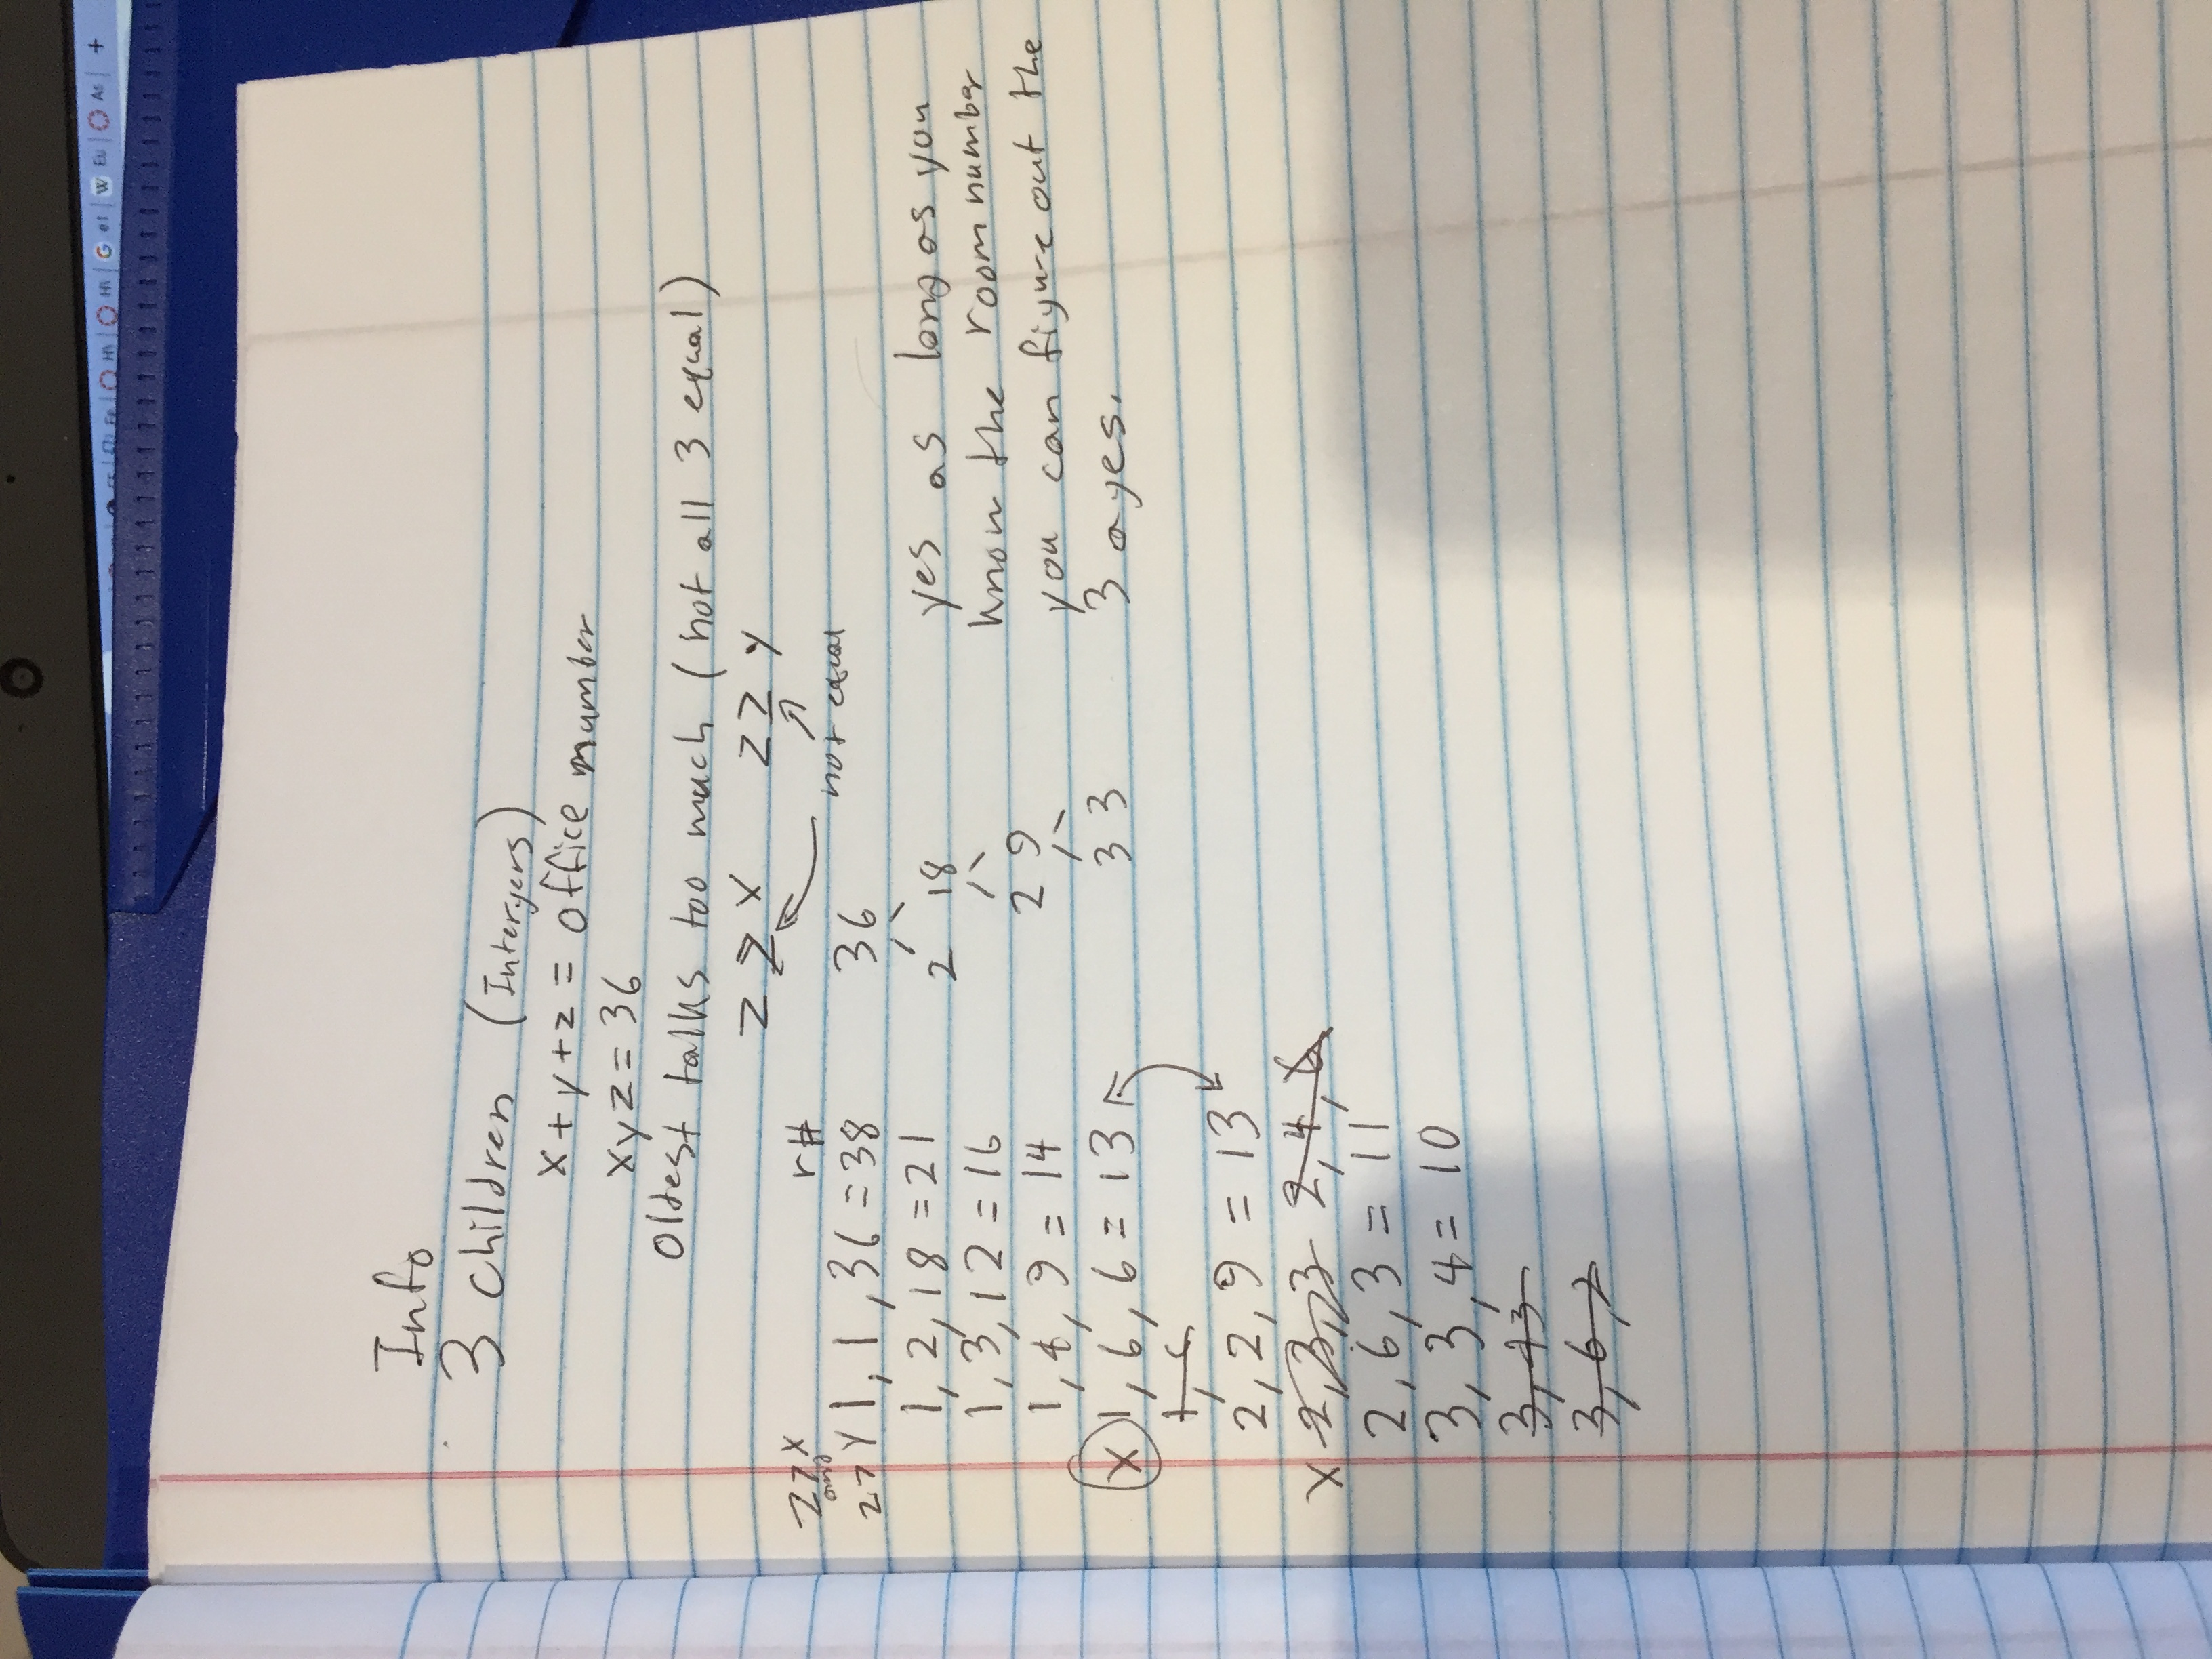 Info
3 children (Intergers)
x + y + z = office number
xyz = 36
Oldest talks too much (not all 3 equal)
z ≥ x z ≥ y
not equal
z > x
and
z > y
r#
1, 1, 36 = 38
1, 2, 18 = 21
1, 3, 12 = 16
1, 4, 9 = 14
x 1, 6, 6 = 13
2, 2, 9 = 13
x 2, 3, 3 2, 4, 6
2, 6, 3 = 11
3, 3, 4 = 10
3, 6, 2
36
2 18
2 9
3 3
yes as long as you
know the room number
you can figure out the
3 ages.
+